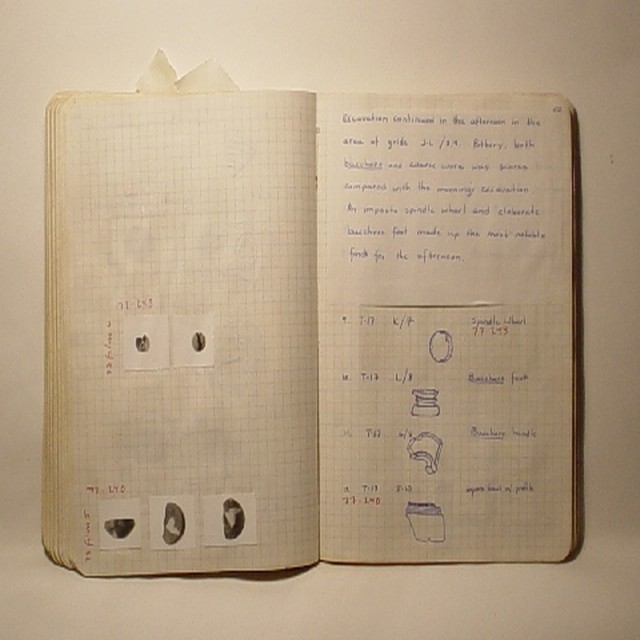 77-253
77-240
Excavation continued in the afternoon in the
area of grids J-L / 8,9. Pottery, both
bucchero and coarse ware was scarce
compared with the mornings excavation.
An impasto spindle whorl and elaborate
bucchero foot made up the most notable
finds for the afternoon.
9. T-17 K/7 Spindle Whorl
77-253
10. T-17 L/8 Bucchero foot
11. T-17 Bucchero handle
12. T-17 w/ profile
77-240